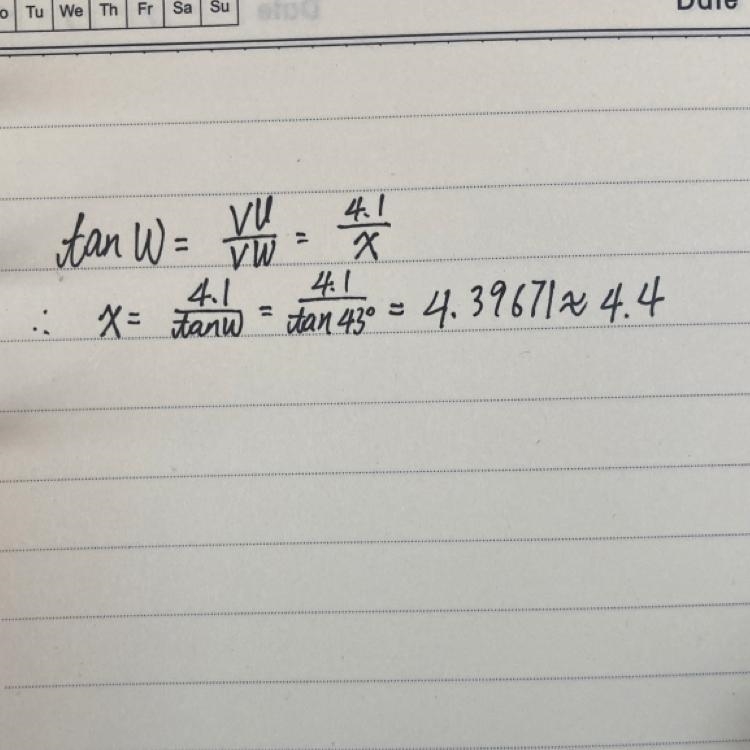 o Tu We Th Fr Sa Su Date
tan W = VU/VW = 4.1/x
∴ x = 4.1/tanW = 4.1/tan 43° = 4.39671 ≈ 4.4